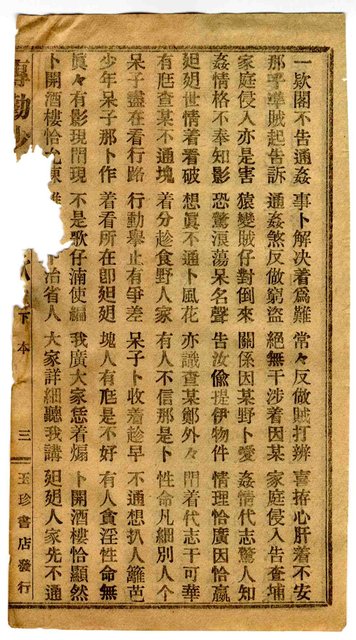 一欵閣不告通姦 事卜解決着爲難 常々反做賊打辨 喜捧心肝着不安
那乎準賊起告訴 通姦煞反做窃盜 絕無干涉着因某 家庭侵入告查埔
家庭侵入亦是害 猿變賊仔對倒來 關係因某野卜愛 姦情代志驚人知
姦情格不奉知影 恐驚浪蕩呆名聲 告汝偸提伊物件 情理恰廣因恰贏
廻廻世情着看破 想眞不通卜風花 亦識查某鄭外々 門着代志干可華
有尫查某不通塊 着分趁食野人家 有人不信那是卜 性命凡細別人个
呆子盡在看行路 行動舉止有爭差 呆子卜收着趁早 不通想扒人籬芭
少年呆子那卜作 着看所在即廻廻 塊人有尫是不好 有人貪淫性命無
眞々有影現問現 不是歌仔湳使編 我廣大家恁着煽 卜開酒樓恰顯然
卜開酒樓恰允東 卜治省人 大家詳細聽我講 廻廻人家先不通
專勸少 下本 三 玉珍書店發行